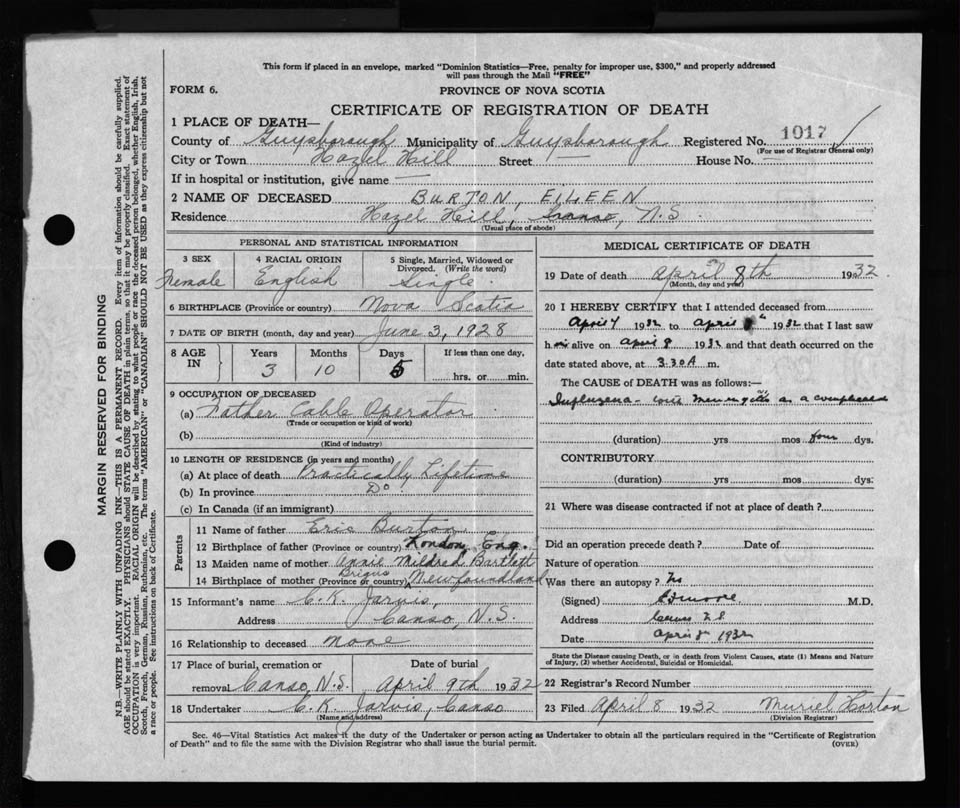 This form if placed in an envelope, marked "Dominion Statistics—Free, penalty for improper use, $300," and properly addressed
will pass through the Mail "FREE"
FORM 6.
PROVINCE OF NOVA SCOTIA
CERTIFICATE OF REGISTRATION OF DEATH
1 PLACE OF DEATH—
County of Guysborough Municipality of Guysborough Registered No. 1017
(For use of Registrar General only)
City or Town Hazel Hill Street — House No. —
If in hospital or institution, give name —
2 NAME OF DECEASED BURTON, EILEEN
Residence Hazel Hill, Canso, N.S.
(Usual place of abode)
PERSONAL AND STATISTICAL INFORMATION
3 SEX
Female
4 RACIAL ORIGIN
English
5 Single, Married, Widowed or
Divorced. (Write the word)
Single
6 BIRTHPLACE (Province or country) Nova Scotia
7 DATE OF BIRTH (month, day and year) June 3, 1928
8 AGE IN
Years Months Days If less than one day,
3 10 5 hrs. or min.
9 OCCUPATION OF DECEASED
(a) Father Cable Operator
(Trade or occupation or kind of work)
(b)
(Kind of industry)
10 LENGTH OF RESIDENCE (in years and months)
(a) At place of death Practically Lifetime
(b) In province Do
(c) In Canada (if an immigrant)
Parents
11 Name of father Eric Burton
12 Birthplace of father (Province or country) London, Eng.
13 Maiden name of mother Annie Mildred Bartlett
14 Birthplace of mother (Province or country) Brigus Newfoundland
15 Informant's name C. K. Jarvis,
Address Canso, N.S.
16 Relationship to deceased none
17 Place of burial, cremation or Date of burial
removal Canso, N.S. April 9th 1932
18 Undertaker C. K. Jarvis, Canso
(Name and address)
MEDICAL CERTIFICATE OF DEATH
19 Date of death April 8th 1932
(Month, day and year)
20 I HEREBY CERTIFY that I attended deceased from
April 7 1932 to April 8 1932 that I last saw
h alive on April 8 1932 and that death occurred on the
date stated above, at 3.30 A m.
The CAUSE of DEATH was as follows:—
Influenza - with as a
(duration) yrs mos four dys.
CONTRIBUTORY
(duration) yrs mos dys:
21 Where was disease contracted if not at place of death?
Did an operation precede death? Date of
Nature of operation
Was there an autopsy? No
(Signed) M.D.
Address Canso N.S.
Date April 8 1932
State the Disease causing Death, or in death from Violent Causes, state (1) Means and Nature
of Injury, (2) whether Accidental, Suicidal or Homicidal.
22 Registrar's Record Number
23 Filed April 8 1932 Muriel Horton
(Division Registrar)
Sec. 46—Vital Statistics Act makes it the duty of the Undertaker or person acting as Undertaker to obtain all the particulars required in the "Certificate of Registration
of Death" and to file the same with the Division Registrar who shall issue the burial permit.
(OVER)
MARGIN RESERVED FOR BINDING
N.B.—WRITE PLAINLY WITH UNFADING INK—THIS IS A PERMANENT RECORD. Every item of information should be carefully supplied.
AGE should be stated EXACTLY. PHYSICIANS should STATE CAUSE OF DEATH in plain terms, so that it may be properly classified. Exact statement of
OCCUPATION is very important. RACIAL ORIGIN will be described by stating to what people or race the deceased person belonged, whether English, Irish,
Scotch, French, German, Russian, Ruthenian, etc. The terms "AMERICAN" or "CANADIAN" SHOULD NOT BE USED as they express citizenship but not
a race or people. See instructions on back of Certificate.